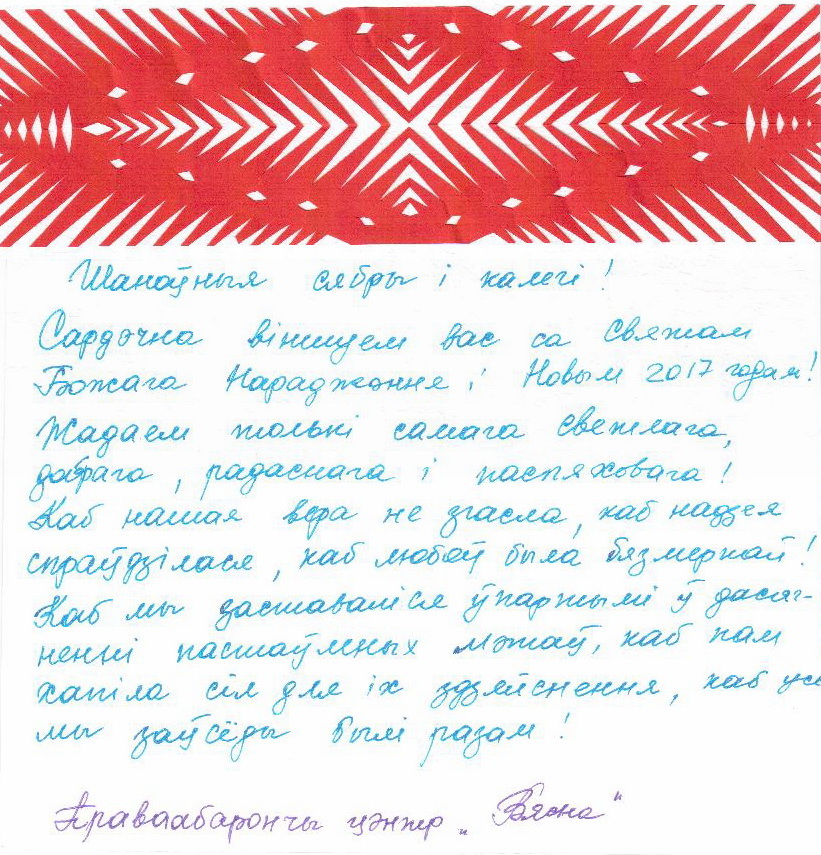 Шаноўныя сябры і калегі!
Сардэчна віншуем вас са Святам
Божага Нараджэння і Новым 2017 годам!
Жадаем толькі самага светлага,
добрага, радаснага і паспяховага!
Каб нашая вера не згасла, каб надзея
спраўдзілася, каб любоў была бязмернай!
Каб мы заставаліся ўпартымі ў дасяг-
ненні пастаўленых мэтаў, каб нам
хапіла сіл для іх здзяйснення, каб усе
мы заўсёды былі разам!
Праваабарончы цэнтр „Вясна"